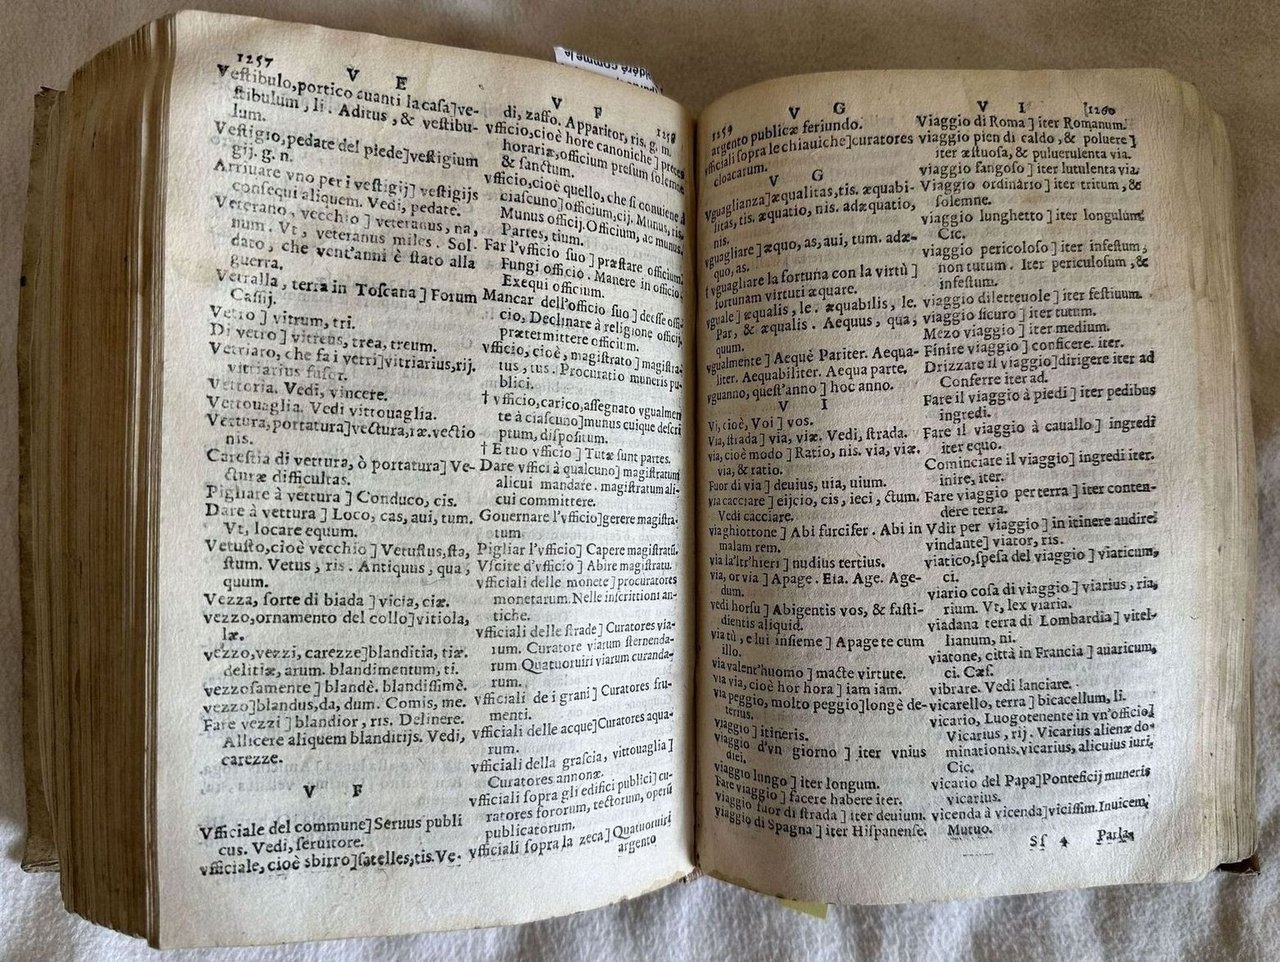 1257
V E
Vestibulo, portico auanti la casa] ve-
stibulum, li. Aditus, & vestibu-
lum.
Vestigio, pedate del piede] vestigium
gij. g. n.
Arriuare vno per i vestigij] vestigijs
consequi aliquem. Vedi, pedate.
Veterano, vecchio ] veteranus, na,
num. Vt, veteranus miles. Sol-
dato, che vent'anni è stato alla
guerra.
Vetralla, terra in Toscana] Forum
Cassij.
Vetro ] vitrum, tri.
Di vetro ] vitreus, trea, treum.
Vetriaro, che fa i vetri] vitriarius, rij.
vitriarius fusor.
Vettoria. Vedi, vincere.
Vettouaglia. Vedi vittouaglia.
Vettura, portatura] vectura, ræ. vectio
nis.
Carestia di vettura, ò portatura] Ve-
cturæ difficultas.
Pigliare à vettura ] Conduco, cis.
Dare à vettura ] Loco, cas, aui, tum.
Vt, locare equum.
Vetusto, cioè vecchio ] Vetustus, sta,
stum. Vetus, ris. Antiquus, qua,
quum.
Vezza, sorte di biada ] vicia, ciæ.
vezzo, ornamento del collo] vitiola,
læ.
vezzo, vezzi, carezze] blanditia, tiæ.
delitiæ, arum. blandimentum, ti.
vezzosamente ] blandè. blandissimè.
vezzo] blandus, da, dum. Comis, me.
Fare vezzi ] blandior, ris. Delinere.
Allicere aliquem blanditijs. Vedi,
carezze.
V F
Vfficiale del commune] Seruus publi
cus. Vedi, seruitore.
vfficiale, cioè sbirro] satelles, tis. Ve-
V F
1258
di, zaffo. Apparitor, ris. g. m.
vfficio, cioè hore canoniche ] preces
horariæ, officium presum solemne
& sanctum.
vfficio, cioè quello, che si conuiene à
ciascuno] officium, cij. Munus, ris.
Munus officij. Officium, ac munus.
Partes, tium.
Far l'vfficio suo ] præstare officium.
Fungi officio. Manere in officio.
Exequi officium.
Mancar dell'officio suo ] deesse offi-
cio, Declinare à religione officij.
prætermittere officium.
vfficio, cioè, magistrato ] magistra-
tus, tus. Procuratio muneris pu-
blici.
† vfficio, carico, assegnato vgualmen
te à ciascuno] munus cuique descri
ptum, dispositum.
† E tuo vfficio ] Tutæ sunt partes.
Dare vffici à qualcuno] magistratum
alicui mandare. magistratum ali-
cui committere.
Gouernare l'vfficio] gerere magistra-
tum
Pigliar l'vfficio] Capere magistratū.
Vscite d'vfficio ] Abire magistratu.
vfficiali delle monete] procuratores
monetarum. Nelle inscrittioni an-
tiche.
vfficiali delle strade] Curatores via-
rum. Curatore viarum sternenda-
rum Quatuoruiri viarum curanda-
rum.
vfficiali de i grani] Curatores fru-
menti.
vfficiali delle acque] Curatores aqua-
rum.
vfficiali della grascia, vittouaglia ]
Curatores annonæ.
vfficiali sopra gli edifici publici] cu-
ratores fororum, tectorum, operū
publicatorum.
vfficiali sopra la zeca] Quatuoruiri
argento
1259
V G
argento publicæ feriundo.
vfficiali sopra le chiauiche] curatores
cloacarum.
V G
Vguaglianza] æqualitas, tis. æquabi-
litas, tis. æquatio, nis. adæquatio,
nis.
vguagliare ] æquo, as, aui, tum. adæ-
quo, as.
† vguagliare la fortuna con la virtù ]
fortunam virtuti æquare.
vguale] æqualis, le. æquabilis, le.
Par, & æqualis. Aequus, qua,
quum.
vgualmente ] Aequè Pariter. Aequa-
liter. Aequabiliter. Aequa parte.
vguanno, quest'anno ] hoc anno.
V I
Vi, cioè, Voi ] vos.
Via, strada] via, viæ. Vedi, strada.
via, cioè modo ] Ratio, nis. via, viæ.
via, & ratio.
Fuor di via ] deuius, uia, uium.
via cacciare ] eijcio, cis, ieci, ctum.
Vedi cacciare.
viaghiottone ] Abi furcifer. Abi in
malam rem.
via la'ltr'hieri ] nudius tertius.
via, or via ] Apage. Eia. Age. Age-
dum.
vedi horsu ] Abigentis vos, & fasti-
dientis aliquid.
via tù, e lui insieme ] Apage te cum
illo.
via valent'huomo ] macte virtute.
via via, cioè hor hora ] iam iam.
via peggio, molto peggio] longè de-
terius.
viaggio ] itineris.
viaggio d'vn giorno ] iter vnius
diei.
viaggio lungo ] iter longum.
Fare viaggio ] facere habere iter.
viaggio fuor di strada ] iter deuium.
viaggio di Spagna ] iter Hispanense.
V I
1260
Viaggio di Roma ] iter Romanum.
viaggio pien di caldo, & poluere ]
iter æstuosa, & puluerulenta via.
viaggio fangoso ] iter lutulenta via.
Viaggio ordinario ] iter tritum, &
solemne.
viaggio lunghetto ] iter longulum.
Cic.
viaggio pericoloso ] iter infestum,
non tutum. Iter periculosum, &
infestum.
viaggio diletteuole ] iter festiuum.
viaggio sicuro ] iter tutum.
Mezo viaggio ] iter medium.
Finire viaggio ] conficere. iter.
Drizzare il viaggio] dirigere iter ad
Conferre iter ad.
Fare il viaggio à piedi ] iter pedibus
ingredi.
Fare il viaggio à cauallo ] ingredi
iter equo.
Cominciare il viaggio] ingredi iter.
inire, iter.
Fare viaggio per terra ] iter conten-
dere terra.
Vdir per viaggio ] in itinere audire.
vindante] viator, ris.
viatico, spesa del viaggio ] viaticum,
ci.
viario cosa di viaggio ] viarius, ria,
rium. Vt, lex viaria.
viadana terra di Lombardia ] vitel-
lianum, ni.
viatone, città in Francia ] auaricum,
ci. Cæs.
vibrare. Vedi lanciare.
vicarello, terra ] bicacellum, li.
vicario, Luogotenente in vn'officio]
Vicarius, rij. Vicarius alienæ do-
minationis. vicarius, alicuius iuri,
Cic.
vicario del Papa] Pontificij muneris
vicarius.
vicenda à vicenda] vicissim. Inuicem,
Mutuo.
Sſ 4 Parla